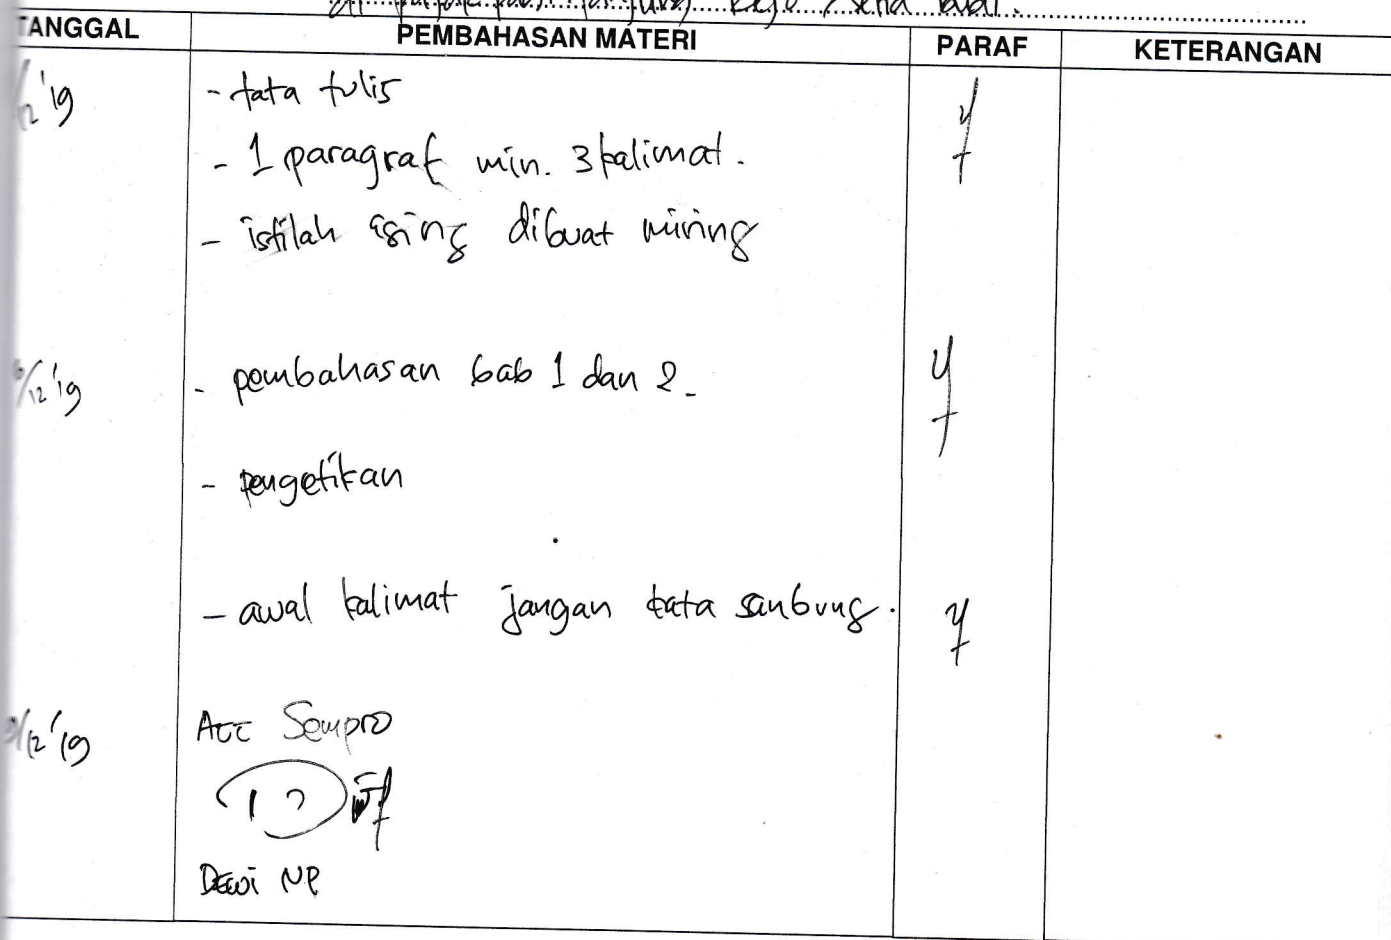 TANGGAL PEMBAHASAN MATERI PARAF KETERANGAN
12 '19 - tata tulis
- 1 paragraf min. 3 kalimat.
- istilah asing dibuat miring
/12 '19 - pembahasan bab 1 dan 2.
- pengetikan
- awal kalimat jangan kata sambung.
/12 '19 Acc Sempro
Dewi NP